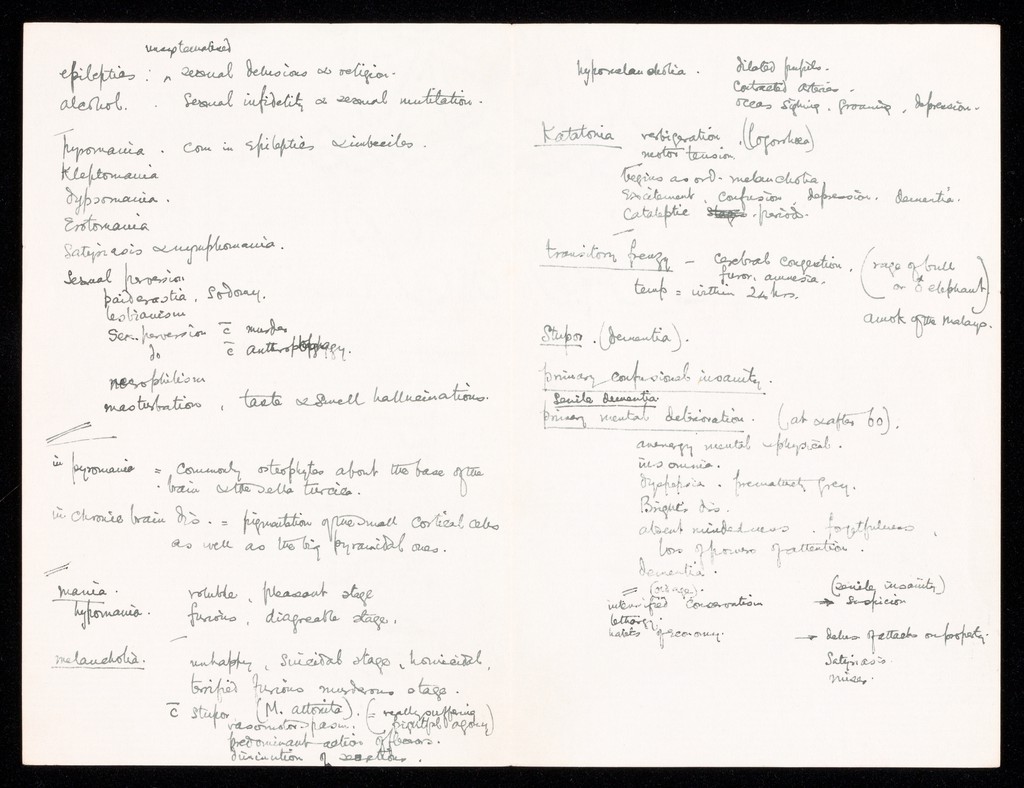 unsystematised
epileptics : ^ sexual delusions & religion.
alcohol. . Sexual infidelity & sexual mutilation.
Pyromania . com in epileptics & imbeciles.
Kleptomania
Dypsomania.
Erotomania
Satyriasis & nymphomania.
Sexual perversion
paiderastia, Sodomy.
lesbianism
Sex. perversion c̄ murder
do c̄ anthropophagy.
necrophilism
masturbation, taste & smell hallucinations.
in pyromania = commonly osteophytes about the base of the
brain & the sella turcica.
in chronic brain dis. = pigmentation of the small cortical cells
as well as the big pyramidal ones.
mania. voluble, pleasant stage
hypomania. furious, disagreable stage.
melancholia. unhappy, suicidal stage, homicidal,
terrified furious murderous stage.
c̄ stupor (M. attonita). (= really suffering
vasomotor spasm. frightful agony)
predominant action of flexors.
diminution of secretions.
hypomelancholia. dilated pupils.
Contracted arteries.
occas sighing, groaning, depression.
Katatonia verbigeration (logorrhoea)
motor tension.
begins as ord. melancholia
Excitement, confusion, depression. dementia.
Cataleptic stage periods.
transitory frenzy - cerebral congestion. (rage of bull
furor, amnesia. or elephant)
temp = within 24 hrs.
amok of the Malays.
Stupor. (dementia).
primary confusional insanity.
Senile dementia
primary mental deterioration. (at & after 60).
anenergy mental & physical.
insomnia.
dyspepsia. prematurely grey.
Bright's dis.
absent mindedness. forgetfulness
loss of powers of attention.
dementia.
= (old age). (senile insanity)
intensified Conservatism → Suspicion
lethargy.
habits of economy. → delus of attacks on property.
Satyriasis.
miser.